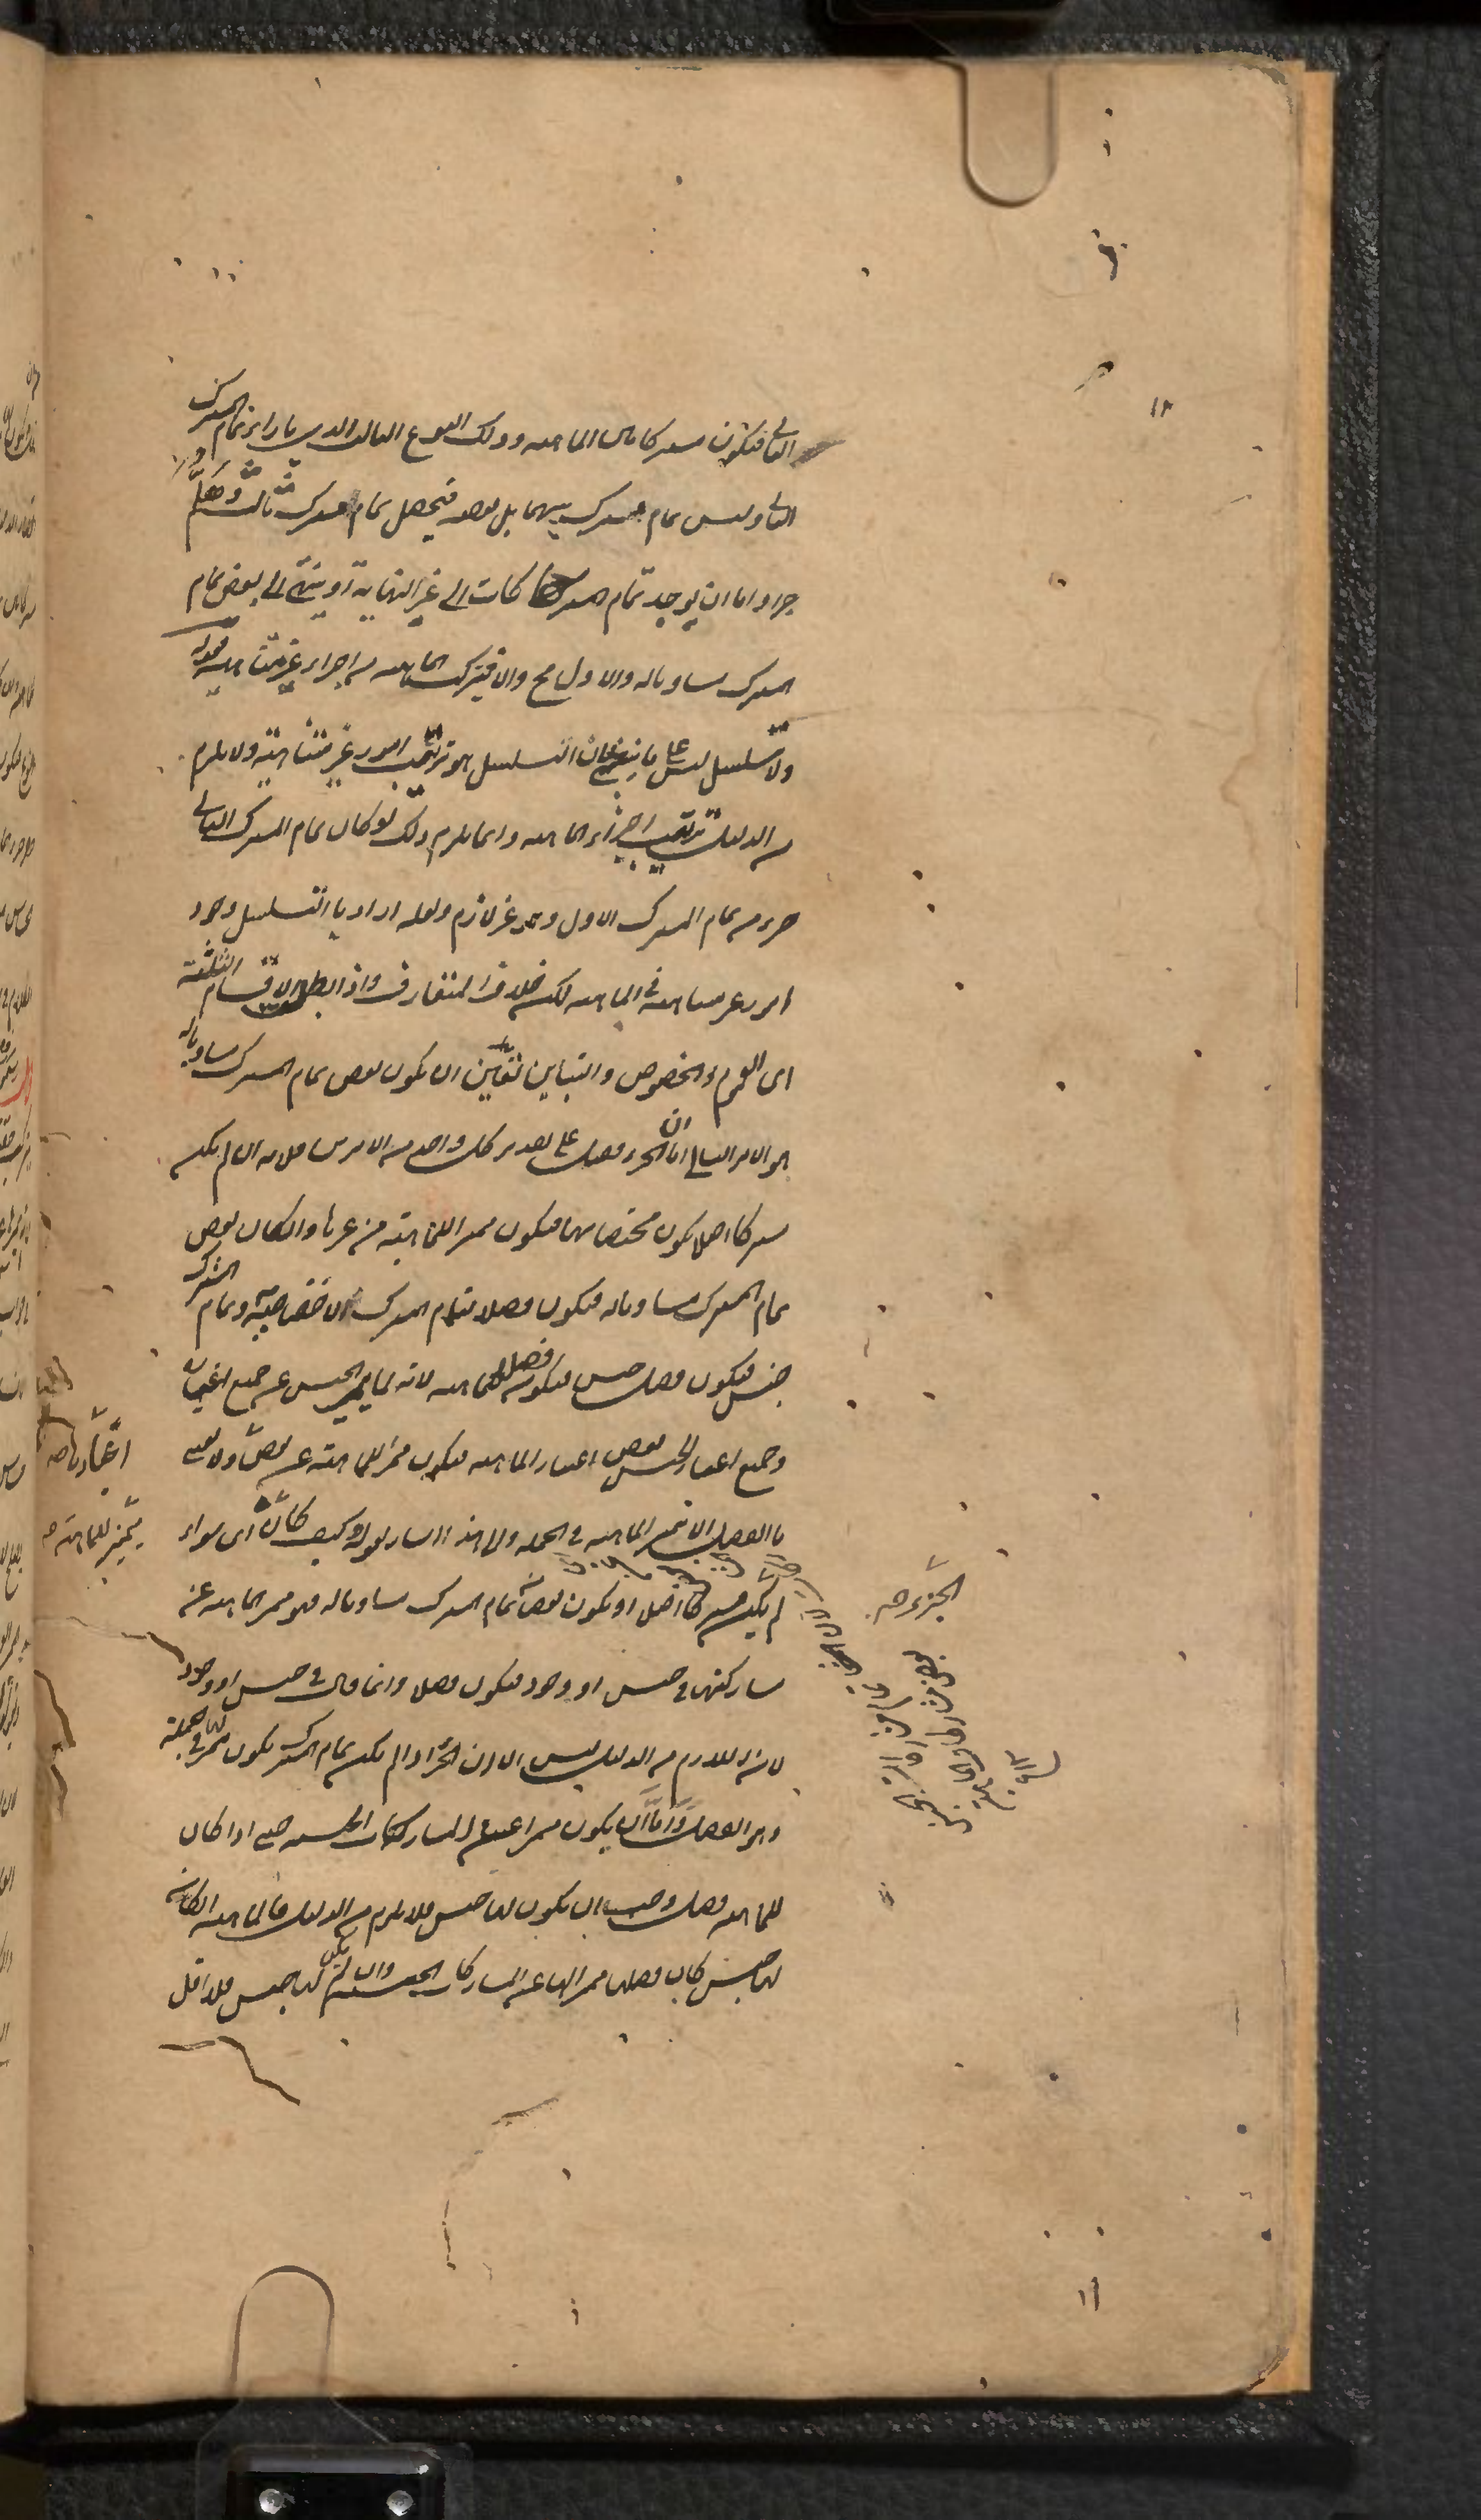 الثانى فيكون مشتركا بين الماهية وذلك النوع الثالث الذى بازاء تمام المشترك
الثانى وليس تمام مشترك بينهما بل بعضه فيحصل تمام مشترك ثالث وهلم
جرا واما ان يوجد تمام المشتركات الى غير النهاية او ينتهى الى بعض تمام
المشترك مساو له والاول مح والا فتتركب الماهية من اجزاء غير متناهية فقوله
ولا يتسلسل ليس على ما ينبغى لان التسلسل هو ترتب امور غير متناهية ولا يلزم
من الدليل ترتب اجزاء الماهية وانما يلزم ذلك لو كان تمام المشترك الثانى
جزء من تمام المشترك الاول وهو غير لازم ولعله اراد بالتسلسل وجود
امور غير متناهية فى الماهية لكنه خلاف المتعارف واذا بطل الاقسام الثلثة
اى العموم والخصوص والتباين تعين ان يكون بعض تمام المشترك مساويا له
هو الامر الثانى اما ان الجزء فصل على تقدير كل واحد من الامرين فلانه ان لم يكن
مشتركا اصلا يكون مختصا بها فيكون مميزا للماهية من غيرها وان كان بعض
تمام المشترك مساويا له فيكون فصلا لتمام المشترك لاختصاصه به وتمام المشترك
جنس فيكون فصل جنس فيكون فصلا للماهية لانه لما ميز الجنس عن جميع اغياره
وجميع اغيار الجنس بعض اغيار الماهية فيكون مميزا للماهية عن بعض ولا نعنى
بالفصل الا مميز الماهية فى الجملة والى هذا اشار بقوله وكيف كان اى سواء
لم يكن مشتركا اصلا او يكون بعض تمام المشترك مساويا له فهو مميز الماهية عن
مشاركتها فى جنس او وجود فيكون فصلا وانما قال فى جنس او وجود
لان اللازم من الدليل ليس الا ان الجزء اذا لم يكن تمام المشترك يكون مميزا لها فى الجملة
وهو الفصل واما ان يكون مميزا عن المشاركات الجنسية حتى اذا كان
للماهية فصل وجب ان يكون لها جنس فلا يلزم من الدليل فالماهية ان كان
لها جنس كان فصلها مميزا لها عن المشاركات الجنسية وان لم يكن لها جنس فلا اقل
اغيارها صح
تميز للماهية صح
الجزء صح